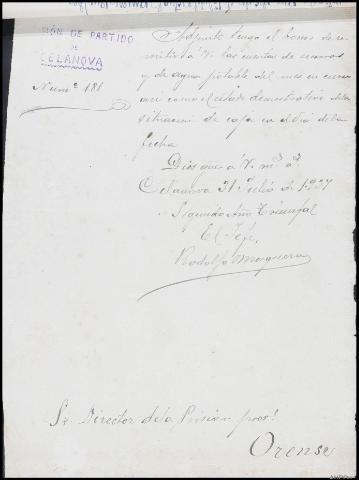 SIÓN DE PARTIDO
DE
CELANOVA
Num.º 181
Adjunto tengo el honor de re
mitir a V. las cuentas de
y de agua potable del mes en curso
asi como el estado demostrativo de la
situacion de caja en el dia de la
fecha
Dios gue a V. m.s a.s
Celanova 31 Julio de 1.937
Segundo Año Triunfal
El Jefe,
Rodolfo
Sr. Director de la Prision prov.l
Orense